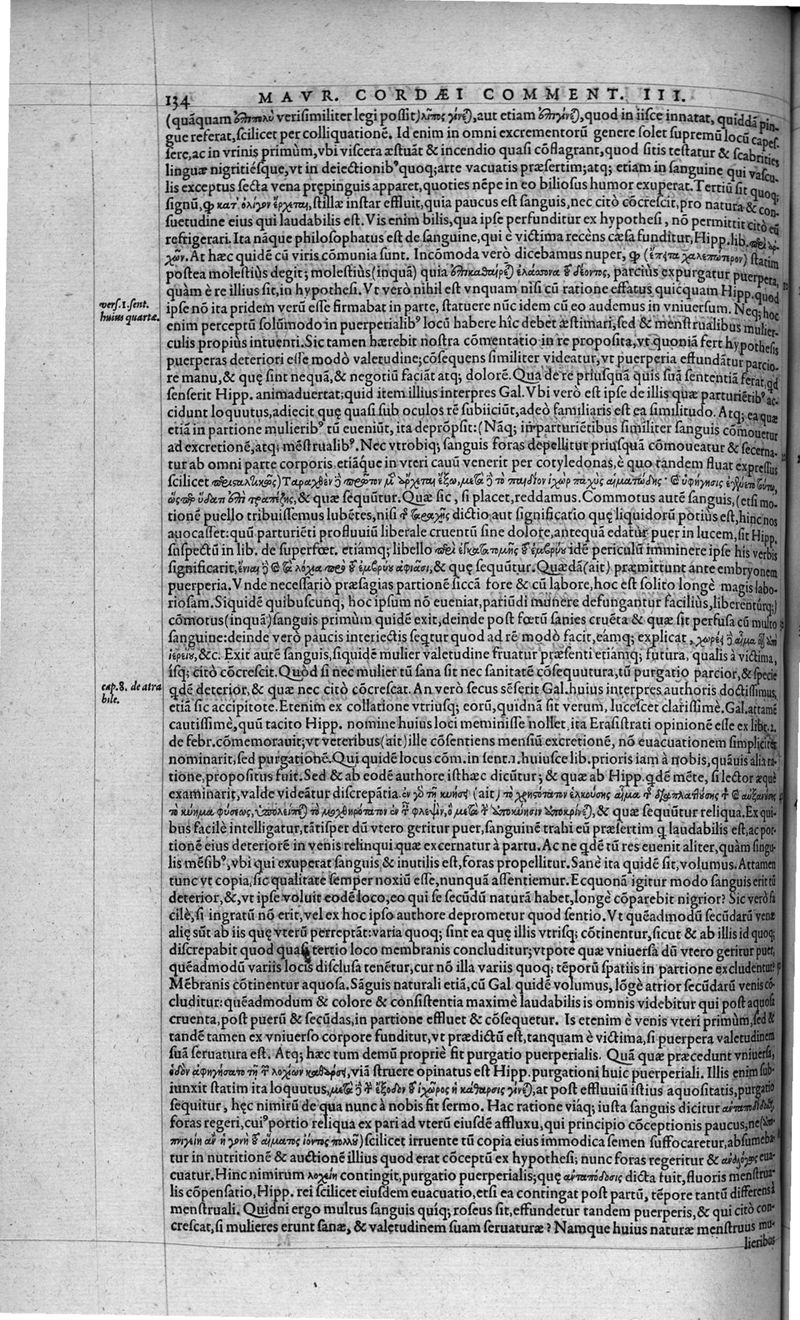 134 MAVR. CORDÆI COMMENT. III.
(quāquam verisimiliter legi possit) aut etiam quod in iisce innatat, quiddā pin-
gue referat, scilicet per colliquationē. Id enim in omni excrementorū genere solet supremū locū capes-
sere, ac in vrinis primùm, vbi viscera æstuāt & incendio quasi cōflagrant, quod sitis testatur & scabrities
linguæ nigritiésque, vt in deiectionibꝰ quoq; arte vacuatis præsertim; atq; etiam in sanguine qui vascu-
lis exceptus secta vena prępinguis apparet, quoties nēpe in eo biliosus humor exuperat. Tertiū sit quoq;
signū, ꝙ κατ᾽ ὀλίγον ἔρχεται, stillæ instar effluit, quia paucus est sanguis, nec citò cōcrescit, pro natura & con-
suetudine eius qui laudabilis est. Vis enim bilis, qua ipse perfunditur ex hypothesi, nō permittit citò eū
refrigerari. Ita nāque philosophatus est de sanguine, qui è victima recèns cæsa funditur, Hipp. lib.
At hæc quidē cū viris cōmunia sunt. Incōmoda verò dicebamus nuper, ꝙ (ἔπειτα χαλεπώτερον) statim
postea molestiùs degit; molestiùs (inquā) quia ἐλάσσονα τοῦ δέοντος, parciùs expurgatur puerpera,
quàm è re illius sit, in hypothesi. Vt verò nihil est vnquam nisi cū ratione effatus quicquam Hipp. quod
vers. 1. sent.
huius quartæ.
ipse nō ita pridem verū esse firmabat in parte, statuere nūc idem cū eo audemus in vniuersum. Neq; hoc
enim perceptū solūmodo in puerperialibꝰ locū habere hîc debet æstimari, sed & mēstrualibus mulier-
culis propiùs intuenti. Sic tamen hærebit nostra cōmentatio in re proposita, vt quoniā fert hypothesis
puerperas deteriori esse modò valetudine; cōsequens similiter videatur, vt puerperia effundātur parcio-
re manu, & quę sint nequā, & negotiū faciāt atq; dolorē. Qua de re priusquā quis suā sententiā ferat, qd
senserit Hipp. animaduertat: quid item illius interpres Gal. Vbi verò est ipse de illis quæ parturiētibꝰ ac-
cidunt loquutus, adiecit quę quasi sub oculos rē subiiciūt, adeò familiaris est ea similitudo. Atq; ea quæ
etiā in partione mulieribꝰ tū eueniūt, ita deprōpsit: (Nāq; in parturiētibus similiter sanguis cōmouetur
ad excretionē, atq; mēstrualibꝰ. Nec vtrobiq; sanguis foras depellitur priusquā cōmoueatur & secerna-
tur ab omni parte corporis etiāque in vteri cauū venerit per cotyledonas, è quo tandem fluat expressus
scilicet
& quæ sequūtur. Quæ sic, si placet, reddamus. Commotus autē sanguis, (etsi mo-
tionē puello tribuissemus lubētes, nisi dictio aut significatio quę liquidorū potiùs est, hinc nos
auocasset: quū parturiēti profluuiū liberale cruentū sine dolore, antequā edatur puer in lucem, sit Hipp.
suspectū in lib. de superfœt. etiamq; libello idē periculū imminere ipse his verbis
significarit, & quę sequūtur. Quædā (ait) præmittunt ante embryonem
puerperia. Vnde necessariò præsagias partionē siccā fore & cū labore, hoc est solito longè magis labo-
riosam. Siquidē quibuscunq; hoc ipsum nō eueniat, pariūdi munere defungantur facilius, liberentúrq;)
cōmotus (inquā) sanguis primùm quidē exit, deinde post fœtū sanies cruēta & quæ sit perfusa cū multo
sanguine: deinde verò paucis interiectis seqtur quod ad rē modò facit, eamq; explicat,
&c. Exit autē sanguis, siquidē mulier valetudine fruatur præsenti etiamq; futura, qualis à victima,
cap. 8. de atra
bile.
isq; citò cōcrescit. Quòd si nec mulier tū sana sit nec sanitatē cōsequutura, tū purgatio parcior, & specie
qdē deterior, & quæ nec citò cōcrescat. An verò secus sēserit Gal. huius interpres authoris doctissimus,
etiā sic accipitote. Etenim ex collatione vtriusq; eorū, quidnā sit verum, lucescet clarissimè. Gal. attamē
cautissimè, quū tacito Hipp. nomine huius loci meminisse nollet, ita Erasistrati opinionē esse ex libr. 1.
de febr. cōmemorauit; vt veteribus (ait) ille cōsentiens mensiū excretionē, nō euacuationem simpliciter
nominarit, sed purgationē. Qui quidē locus cōm. in sent. 1. huiusce lib. prioris iam à nobis, quāuis alia ra-
tione, propositus fuit. Sed & ab eodē authore isthæc dicūtur; & quæ ab Hipp. qdē mēte, si lector æquè
examinarit, valde videātur discrepātia. (ait)
& quæ sequūtur reliqua. Ex qui-
bus facilè intelligatur, tātisper dū vtero geritur puer, sanguinē trahi eū præsertim q laudabilis est, ac por-
tionē eius deteriorē in venis relinqui quæ excernatur à partu. Ac ne qdē tū res euenit aliter, quàm singu-
lis mēsibꝰ, vbi qui exuperat sanguis & inutilis est, foras propellitur. Sanè ita quidē sit, volumus. Attamen
tunc vt copia, sic qualitate semper noxiū esse, nunquā assentiemur. Ecquonā igitur modo sanguis erit tū
deterior, &, vt ipse voluit eodē loco, eo qui se secūdū naturā habet, longè cōparebit nigrior? Sic verò fa-
cilè, si ingratū nō erit, vel ex hoc ipso authore deprometur quod sentio. Vt quēadmodū secūdarū venæ
alię sūt ab iis quę vterū perreptāt: varia quoq; sint ea quę illis vtrisq; cōtinentur, sicut & ab illis id quoq;
discrepabit quod quasi tertio loco membranis concluditur; vtpote quæ vniuersa dū vtero geritur puer,
quēadmodū variis locis disclusa tenētur, cur nō illa variis quoq; tēporū spatiis in partione excludentur?
Mēbranis cōtinentur aquosa. Sāguis naturali etiā, cū Gal. quidē volumus, lōgè atrior secūdarū venis cō-
cluditur: quēadmodum & colore & consistentia maximè laudabilis is omnis videbitur qui post aquosa
cruenta, post puerū & secūdas, in partione effluet & cōsequetur. Is etenim è venis vteri primùm, sed &
tandē tamen ex vniuerso corpore funditur, vt prædictū est, tanquam è victima, si puerpera valetudinem
suā seruatura est. Atq; hæc tum demū propriè fit purgatio puerperialis. Quā quæ præcedunt vniuersa,
viā struere opinatus est Hipp. purgationi huic puerperiali. Illis enim sub-
iunxit statim ita loquutus, at post effluuiū istius aquositatis, purgatio
sequitur, hęc nimirū de qua nunc à nobis fit sermo. Hac ratione viáq; iusta sanguis dicitur
foras regeri, cuiꝰ portio reliqua ex pari ad vterū eiusdē affluxu, qui principio cōceptionis paucus, ne
scilicet irruente tū copia eius immodica semen suffocaretur, absumeba-
tur in nutritionē & auctionē illius quod erat cōceptū ex hypothesi; nunc foras regeritur & eua-
cuatur. Hinc nimirum λοχείη contingit, purgatio puerperialis; quę ἀνταπόδοσις dicta fuit, fluoris menstrua-
lis cōpensatio, Hipp. rei scilicet eiusdem euacuatio, etsi ea contingat post partū, tēpore tantū differens à
menstruali. Quidni ergo multus sanguis quiq; roseus sit, effundetur tandem puerperis, & qui citò con-
crescat, si mulieres erunt sanæ, & valetudinem suam seruaturæ? Namque huius naturæ menstruus mu-
lieribus